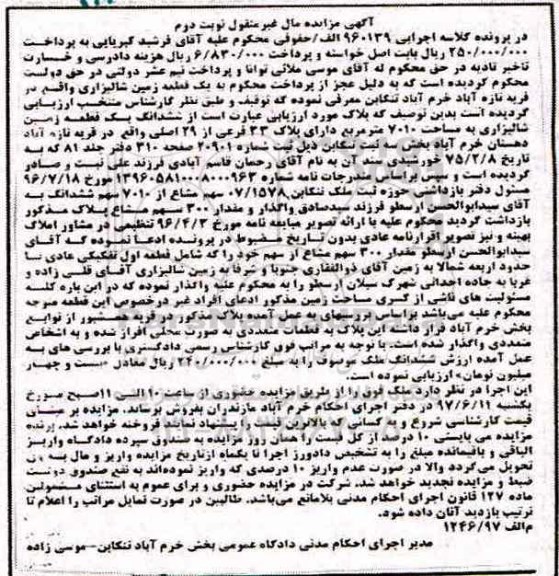 آگهی مزایده مال غیر منقول نوبت دوم
در پرونده کلاسه اجرایی ۹۶۰۱۳۹ الف/حقوقی محکوم علیه آقای فرشید کبریایی به پرداخت
۲۵۰/۰۰۰/۰۰۰ ریال بابت اصل خواسته و پرداخت ۶/۸۳۰/۰۰۰ ریال هزینه دادرسی و خسارت
تاخیر تادیه در حق محکوم له آقای موسی ملائی توانا و پرداخت نیم عشر دولتی در حق دولت
محکوم گردیده است که به دلیل عجز از پرداخت محکوم به یک قطعه زمین شالیزاری واقع در
قریه تازه آباد خرم آباد تنکابن معرفی نموده که توقیف و طبق نظر کارشناس منتخب ارزیابی
گردیده است بدین توصیف که پلاک مورد ارزیابی عبارت است از ششدانگ یک قطعه زمین
شالیزاری به مساحت ۷۰۱۰ مترمربع دارای پلاک ۳۳ فرعی از ۲۹ اصلی واقع در قریه تازه آباد
دهستان خرم آباد بخش ۳ ثبت تنکابن ذیل ثبت شماره ۲۰۹۰۱ صفحه ۳۱۰ دفتر جلد ۸۱ که به
تاریخ ۷۵/۲/۸ خورشیدی سند آن به نام آقای رحمان قاسم آبادی فرزند علی ثبت و صادر
گردیده است و سپس براساس مندرجات نامه شماره ۱۳۹۶۰۵۸۱۰۰۰۸۰۰۰۹۶۳ مورخ ۹۶/۷/۱۸
مسئول دفتر بازداشتی حوزه ثبت ملک تنکابن ۰۷/۱۵۷۸ سهم مشاع از ۷۰۱۰ سهم ششدانگ به
آقای سیدابوالحسن ارسطو فرزند سیدصادق واگذار و مقدار ۳۰۰ سهم مشاع پلاک مذکور
بازداشت گردید محکوم علیه با ارائه تصویر مبایعه نامه مورخ ۹۶/۴/۳ تنظیمی در مشاور املاک
بهینه و نیز تصویر اقرارنامه عادی بدون تاریخ مضبوط در پرونده ادعا نموده که آقای
سیدابوالحسن ارسطو مقدار ۳۰۰ سهم مشاع از سهم خود را که شامل قطعه اول تفکیکی عادی با
حدود اربعه شمالا به زمین آقای ذوالفقاری جنوبا و شرقا به زمین شالیزاری آقای قلی زاده و
غربا به جاده احداثی شهرک سبلان ارسطو را به محکوم علیه واگذار نموده که در این باره کلیه
مسئولیت های ناشی از کسری مساحت زمین مذکور ادعای افراد غیر درخصوص این قطعه متوجه
محکوم علیه می‌باشد براساس بررسیهای به عمل آمده پلاک مذکور در قریه از توابع
بخش خرم آباد قرار داشته این پلاک به قطعات متعددی به صورت محلی افراز شده و به اشخاص
متعددی واگذار شده است. با توجه به مراتب فوق کارشناس رسمی دادگستری با بررسی های به
عمل آمده ارزش ششدانگ ملک موصوف را به مبلغ ۲۴۰/۰۰۰/۰۰۰ ریال معادل بیست و چهار
میلیون تومان» ارزیابی نموده است.
این اجرا در نظر دارد ملک فوق را از طریق مزایده حضوری از ساعت ۱۰ الی ۱۱ صبح مورخ
یکشنبه ۹۷/۶/۱۱ در دفتر اجرای احکام خرم آباد مازندران بفروش برساند. مزایده بر مبنای
قیمت کارشناسی شروع و به کسانی که بالاترین قیمت را پیشنهاد نمایند فروخته خواهد شد. برنده
مزایده می بایستی ۱۰ درصد از کل قیمت را همان روز مزایده به صندوق سپرده دادگاه واریز
الباقی و باقیمانده مبلغ را به تشخیص دادورز اجرا تا یکماه ازتاریخ مزایده واریز و مال به وی
تحویل می‌گردد والا در صورت عدم واریز ۱۰ درصدی که واریز نموده‌اند به نفع صندوق دولت
ضبط و مزایده تجدید خواهد شد. شرکت در مزایده حضوری و برای عموم به استثنای مشمولین
ماده ۱۲۷ قانون اجرای احکام مدنی بلامانع می‌باشد. طالبین در صورت تمایل مراتب را اعلام تا
ترتیب بازدید آنان داده شود.
م الف ۱۲۴۶/۹۷
مدیر اجرای احکام مدنی دادگاه عمومی بخش خرم آباد تنکابن-موسی زاده